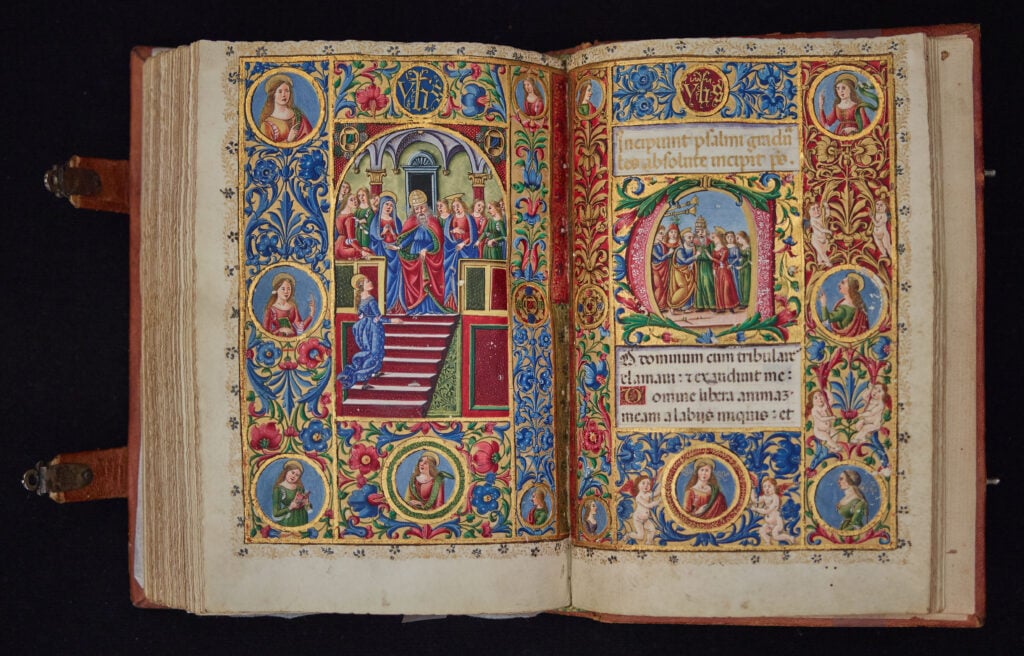 incipiunt psalmi gradu
les absolute incipit p̊s.
A
D dominum cum tribulare
clamaui : ⁊ exaudiuit me :
Domine libera animaꝫ
meam a labijs iniquis : et